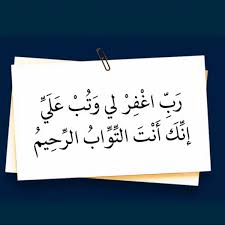 رَبِّ اغْفِرْ لي وَتُبْ عَلَيَّ
إنَّكَ أَنْتَ التَّوَّابُ الرَّحِيمُ